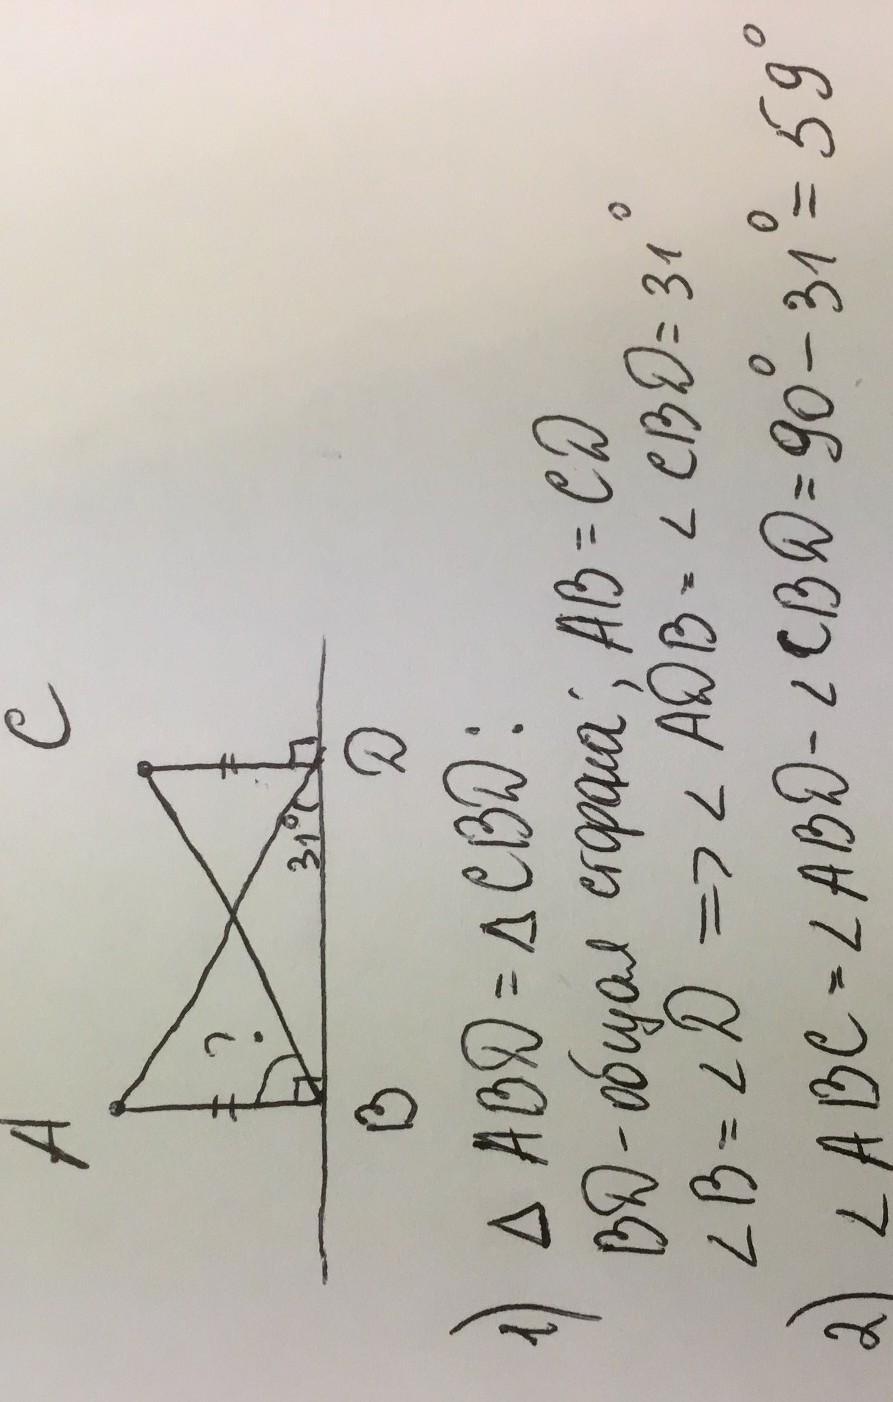 A C
?
31°
B D
1) Δ ABD = Δ CBD:
BD - общая сторона; AB = CD
∠B = ∠D => ∠ADB = ∠CBD = 31°
2) ∠ABC = ∠ABD - ∠CBD = 90° - 31° = 59°